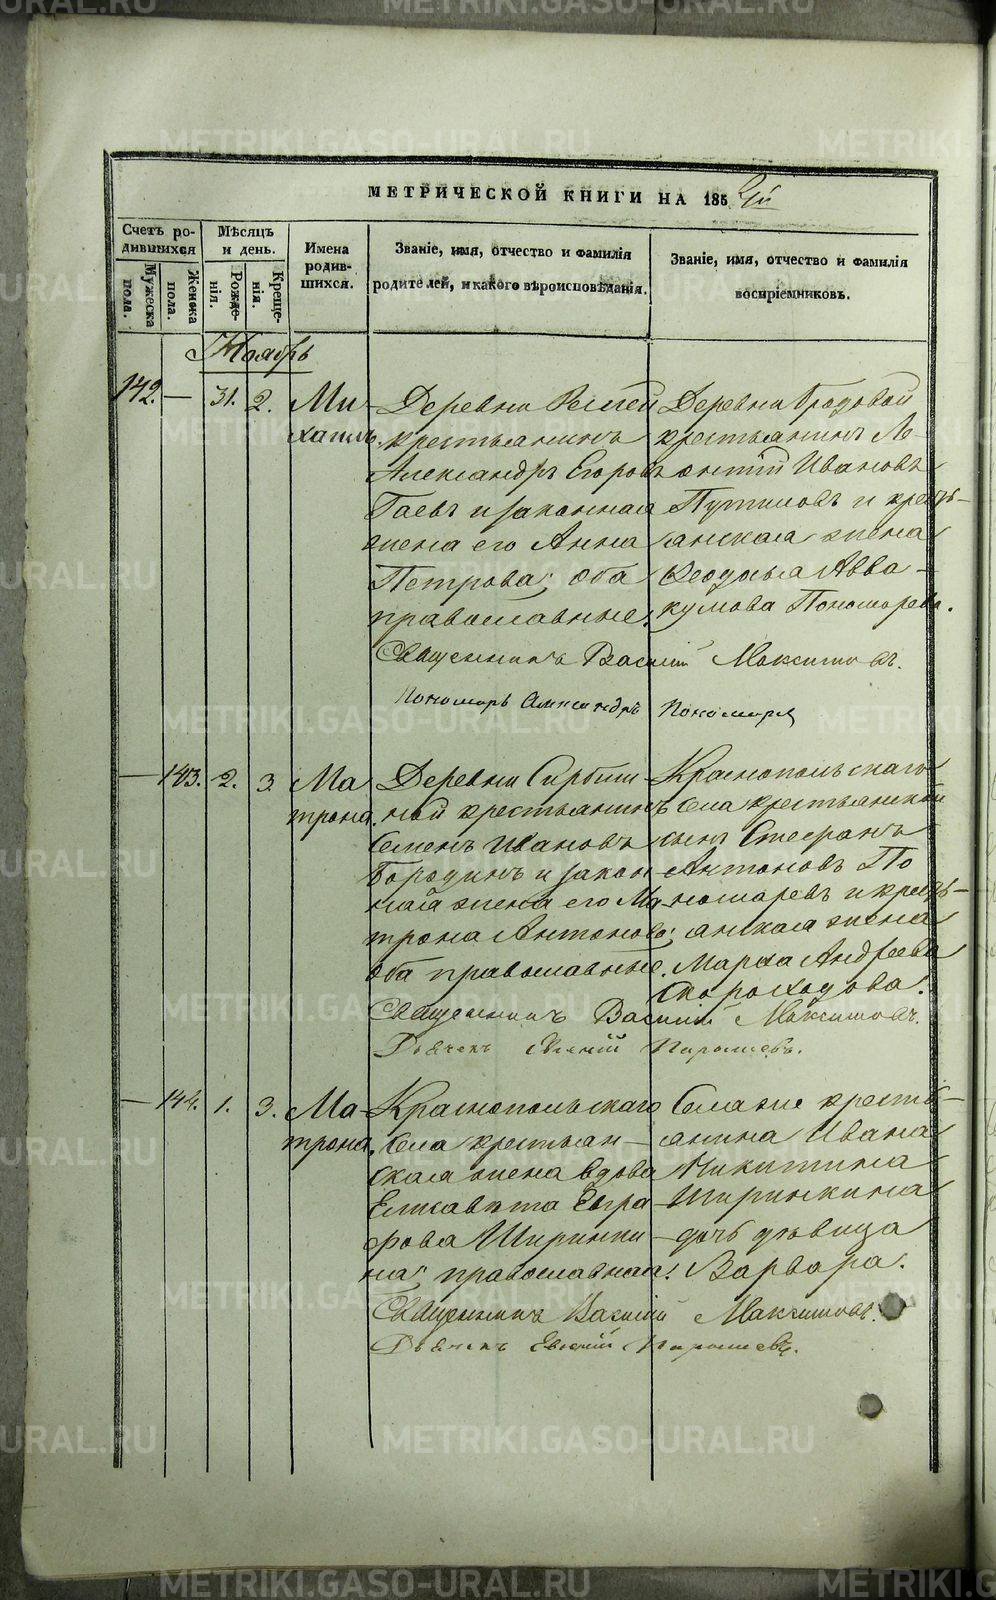 METRIKI.GASO-URAL.RU
МЕТРИЧЕСКОЙ КНИГИ НА 185
Счетъ родившихся
Мужеска пола.
Женска пола.
Мѣсяцъ и день.
Рожденія.
Крещенія.
Имена родившихся.
Званіе, имя, отчество и фамилія
родителей, и какого вѣроисповѣданія.
Званіе, имя, отчество и фамилія
воспріемниковъ.
Ноябрь
142. — 31. 2.
Михаилъ.
Деревни
крестьянинъ
Александръ Егоровъ
Гаевъ и законная
жена его Анна
Петрова; оба
православные.
Деревни Бродовой
крестьянинъ Ле-
онтій Ивановъ
Путиловъ и кресть-
янская жена
Ѳеодосья Авва-
кумова Пономарева.
Священникъ Василій Максимовъ.
Пономарь Александръ Пономарев
— 143. 2. 3.
Матрона.
Деревни
крестьянинъ
Семенъ Ивановъ
Бородинъ и закон-
ная жена его Ма-
трона Антонова;
оба православные.
Краснопольскаго
села крестьянскій
сынъ Стефанъ
Антоновъ По
номаревъ и кресть-
янская жена
Марѳа Андреева
Скороходова.
Священникъ Василій Максимовъ.
Дьячекъ Евгеній
— 144. 1. 3.
Матрона.
Краснопольскаго
села крестьян-
ская жена вдова
Елисавета Евгра-
фова Ширинки-
на; православная.
Села же кресть-
янина Ивана
Никитина
Ширинкина
дочь дѣвица
Варвара.
Священникъ Василій Максимовъ.
Дьячекъ Евгеній